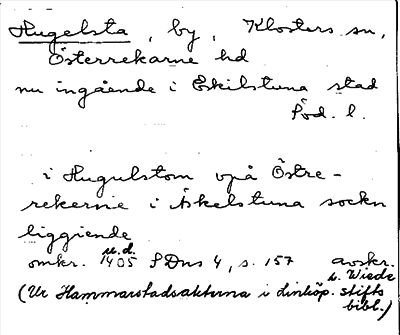 Hugelsta, by, Klosters sn,
Österrekarne hd
nu ingående i Eskilstuna stad
Söd. l.
i Hugulstom vpå Östre-
rekerne i Åkelstuna sockn
liggiende
u.d.
omkr. 1405 SDns 4, s. 157 avskr.
u. Wiede
(Ur Hammarstadsakterna i Linköp. stifts
bibl.)